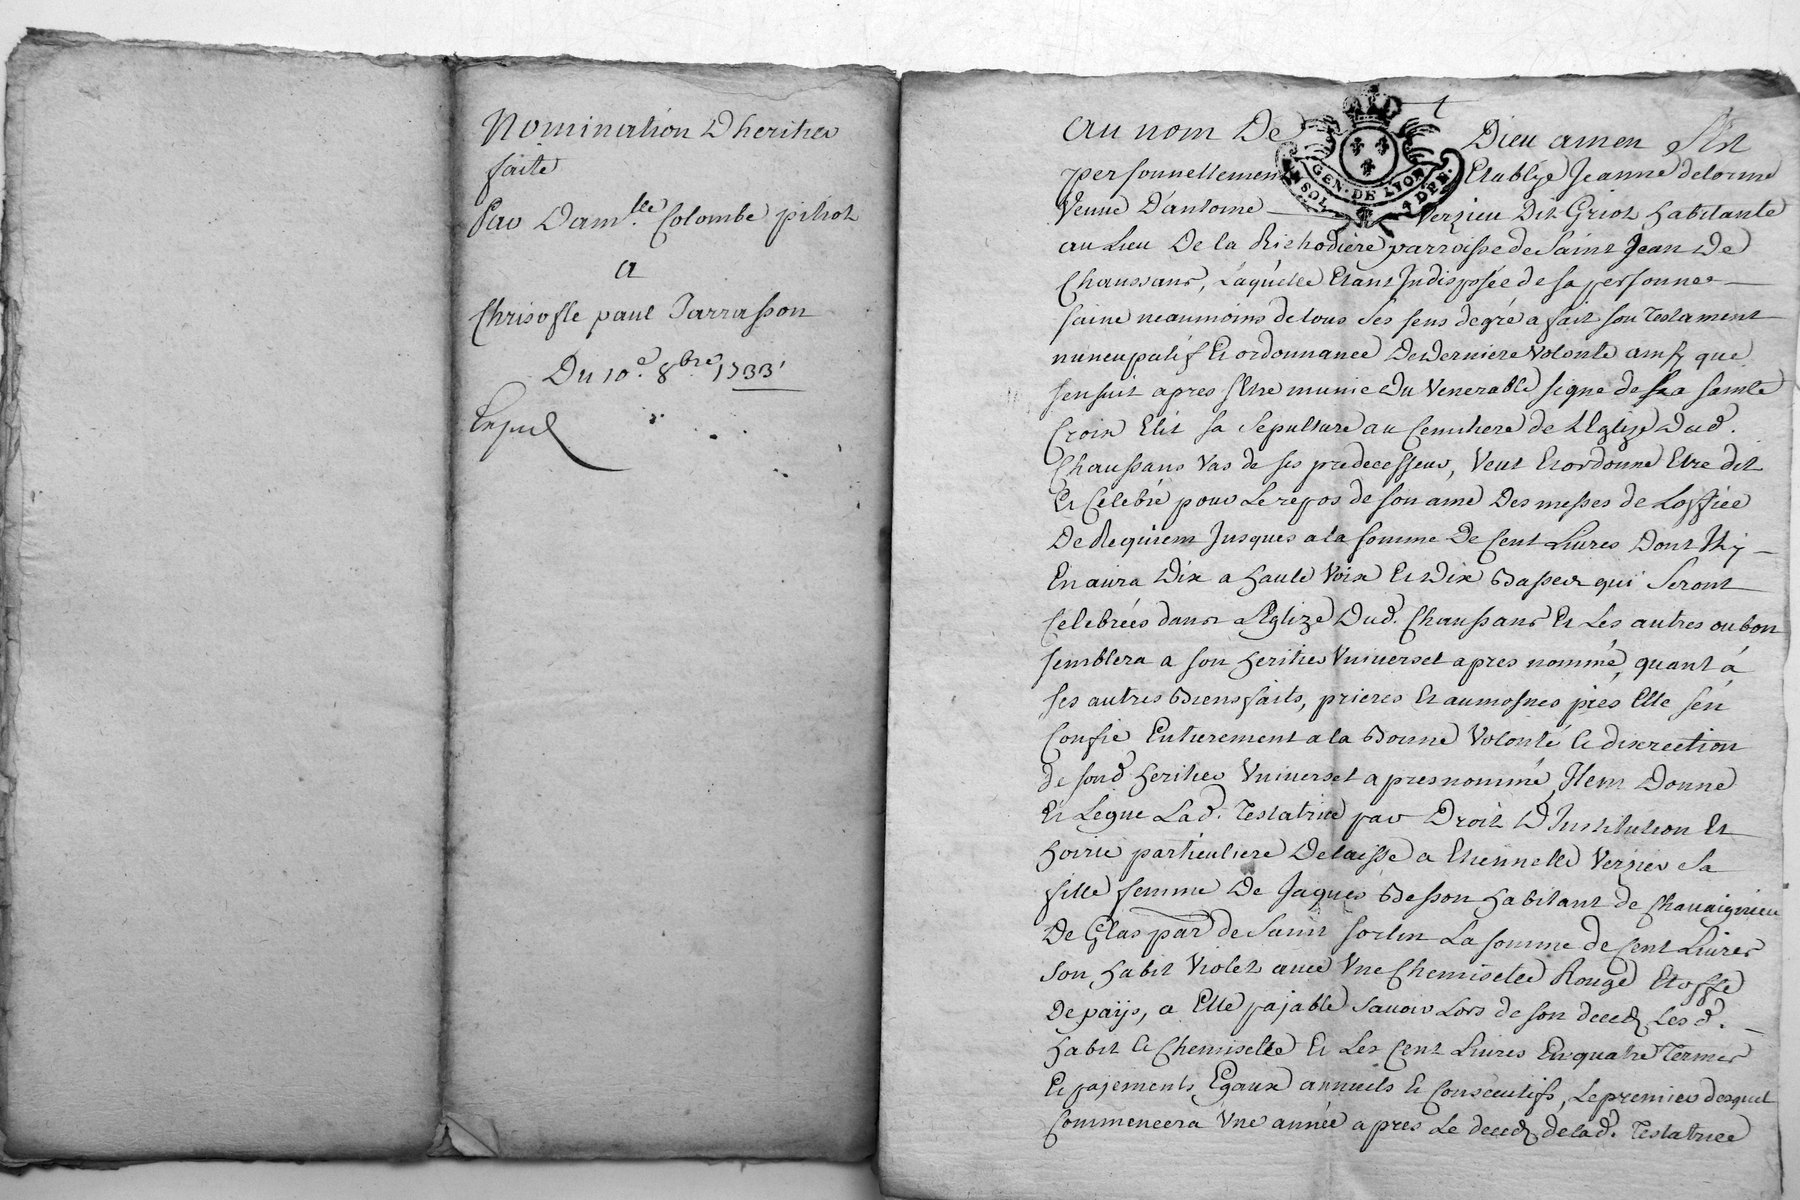 Nomination Dheritier
faite
Par Dam.lle Colombe pitiot
a
Chrisofle paul Jarrasson
Du 10.e 8bre 1733
au nom De Dieu amen fût
personnellement Etablye Jeanne delorme
Veuve D'antoine Verzieu Dit Griot habitante
au Lieu De la Richodiere parroisse de Saint Jean De
Chaussans, Laquelle Etant Indisposée de sa personne
saine neaumoins de tous ses sens degré a fait son Testament
nuncupatif Et ordonnance De Derniere Volonté ainsy que
sensuit apres s'etre munie Du Venerable signe de la sainte
Croix Elit sa sepulture au Cemitiere de L'Eglize Dud.
Chaussans Vas de ses predecesseur, Veut Et ordonne Etre dit
Et Celebré pour Le repos de son ame Des messes de Loffice
De Requiem Jusques a la somme De Cent Livres Dont Il y
En aura Dix a haute Voix Et Dix Basses qui Seront
Celebrées dans L'Eglize Dud. Chaussans Et Les autres ou bon
semblera a son heritier Vniversel apres nommé, quant á
ses autres Biensfaits, prieres Et aumosnes pies Elle s'en
Confie Entierement a la Bonne Volonté Et discreetion
de sond. heritier Vniversel apres nommé, Item Donne
Et Legue Lad. Testatrice par Droit D'Institution Et
hoirie particuliere Delaisse a Etiennette Verzieu Sa
fille femme De Jaques Besson habitant de Chavaignieu
De Glas par. de Saint Sorlin La somme de Cent Livres
Son habit Violet avec Vne Chemisette Rouge Etoffe
De pays, a Elle payable savoir Lors de son decedz Lesd.
habit Et Chemisette Et Les Cent Livres En quatre Termes
Et payements Egaux annuels Et Consecutifs, Le premier desquel
Commencera Vne année apres Le decedz de lad. Testatrice
GEN. DE LYON